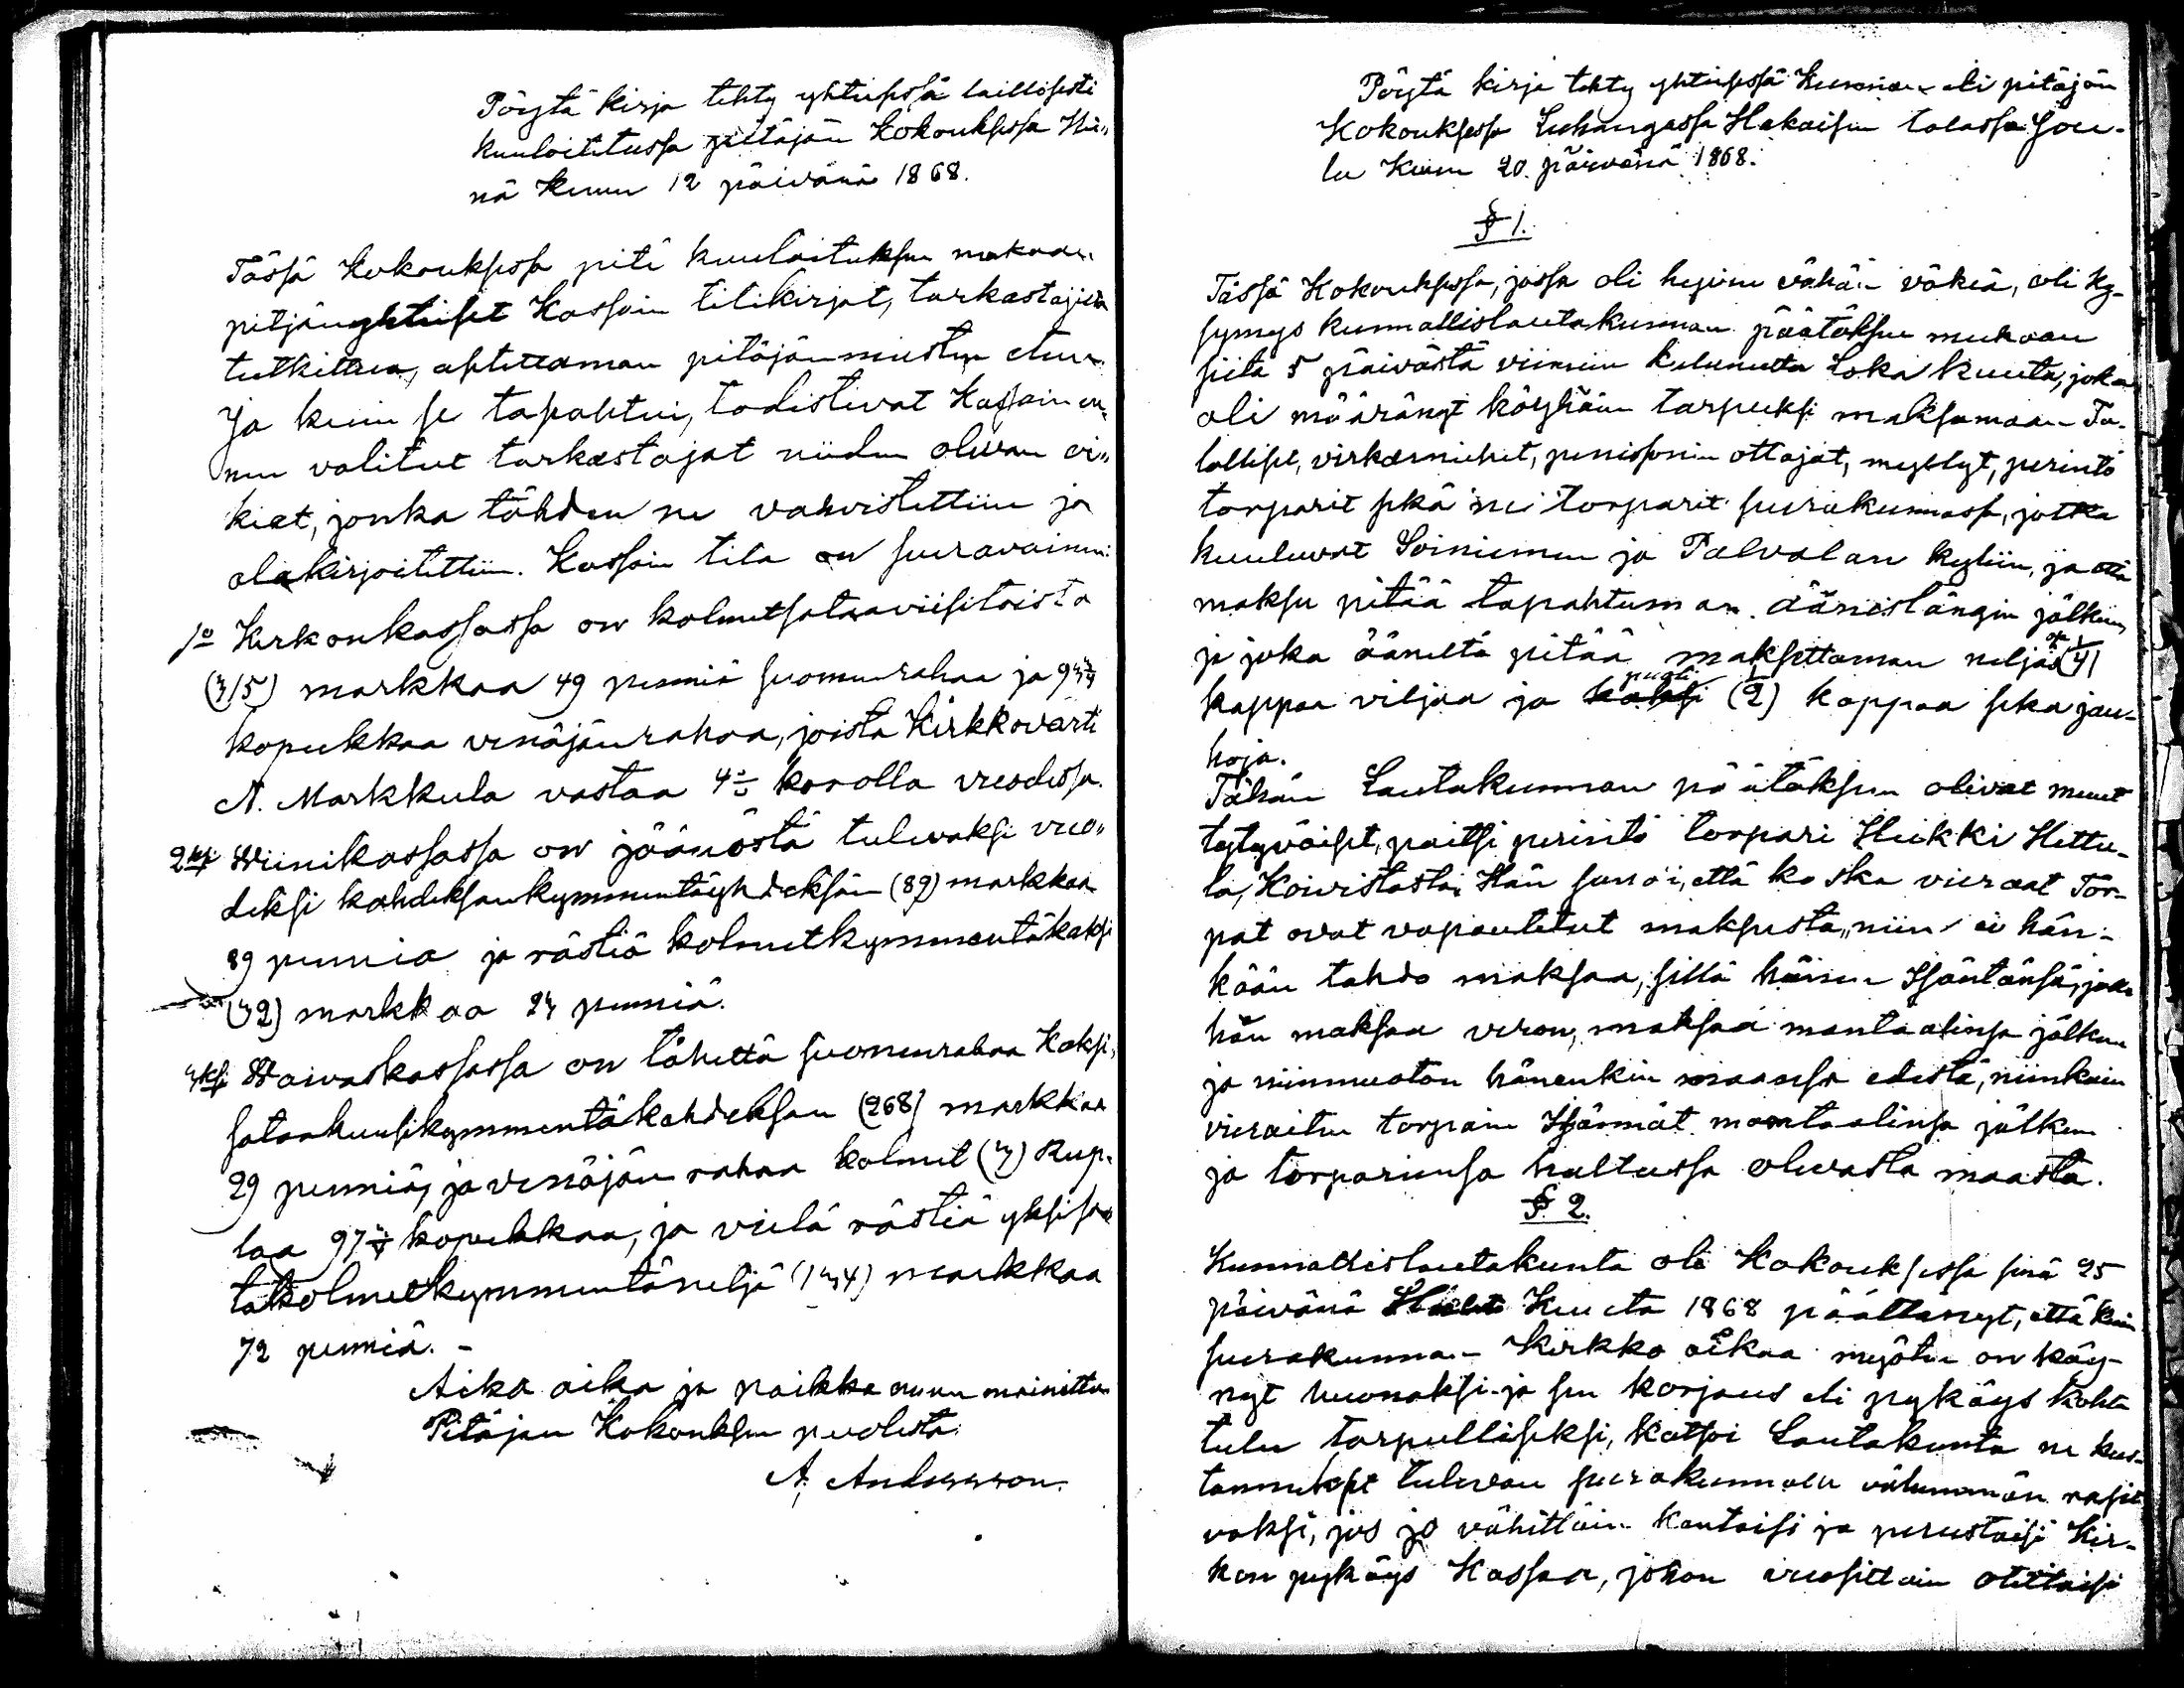 Pöytä kirja tehty yhteisessä laillisesti
kuuloitetussa pitäjän Kokouksessa Hei„
nä kuun 12 päivänä 1868.
Tässä Kokouksessa piti kuuloituksen mukaan
pitjänyhteiset Kassain tilikirjat, tarkastajilta
tutkittua, asetettaman pitäjänmiesten eteen
Ja kuin se tapahtui, todistivat Kassain en„
nen valitut tarkastajat niiden olevan oi„
kiat, jonka tähden ne vahvistettiin ja
alakirjoitettiin. Kassain tila on seuravainen:
1o Kirkonkassassa on kolmetsataaviisitoista
(315) markkaa 49 penniä suomenrahaa ja 93¾
kopeekkaa venäjänrahaa, joista Kirkkovärti
A. Markkula vastaa 4% korolla vuodessa.
2ksi Viinikassassa on jäänöstä tulevaksi vuo„
deksi kahdeksankymmentäyhdeksän (89) markkaa
89 penniä ja rästiä kolmetkymmentäkaksi
(32) markkaa 23 penniä.
3ksi Vaivaskassassa on lähettä suomenrahaa Kaksi„
sataakuusikymmentäkahdeksan (268) markkaa
29 penniä, ja venäjän rahaa kolmet (3) Rup„
laa 97¾ kopeekkaa, ja vielä rästiä yksisa„
takolmetkymmentäneljä (134) markkaa
72 penniä. -
Aika ja paikka ennen mainittu
Pitäjän Kokouksen puolesta:
A. Andersson.
Pöytä kirja tehty yhteisessä Kunnan eli pitäjän
Kokouksessa Luhangassa Hakaisen talossa Jou-
lu Kuun 20. päivänä 1868.
§ 1.
Tässä Kokouksessa, jossa oli hyvin vähän väkiä, oli ky-
symys kunnallislautakunnan päätöksen mukaan
siitä 5 päivästä viimein kulunutta Loka kuuta, joka
oli määrännyt köyhäin tarpeeksi maksamaan Ta-
lolliset, virkamiehet, pensionin ottajat, myllyt, perintö
torparit sekä ne torparit seurakunnassa, jotka
kuuluvat Soiniemen ja Palvalan kyliin, ja että
maksu pitää tapahtuman äänislängin jälkeen,
ja joka ääneltä pitää maksettaman neljäs (¼)
kappaa viljaa ja puoli (½) kappaa seka jau-
hoja.
Tähän Lautakunnan päätöksen olivat muut
tytyväiset, paitsi perintö torpari Heikki Hettu-
la, Koivistosta; Hän sanoi, että koska vieraat Tor-
pat ovat vapautetut maksusta, niin ei hän-
kään tahdo maksaa, sillä hänen Isäntänsä, jolle
hän maksaa veron, maksaa mantaalinsa jälkeen
ja niinmuoton hänenkin maansa edestä, niinkuin
vieraitten torpain Isännät mantaalinsa jälkeen
ja torpariensa haltussa olevasta maasta.
§ 2.
Kunnallislautakunta oli Kokouksessa sinä 25
päivänä Kuuta 1868 päättänyt, että kuin
seurakunnan Kirkko aikaa myöten on käy-
nyt huonoksi ja sen korjaus eli pykäys kohta
tulee tarpeelliseksi, katsoi Lautakunta ne kus-
tannukset tulevan seurakunnalle vähemmän rasit
vaksi, jos jo vähittäin kantaisi ja perustaisi Kir-
kon pykäys Kassaa, johon vuosittain otettaisi